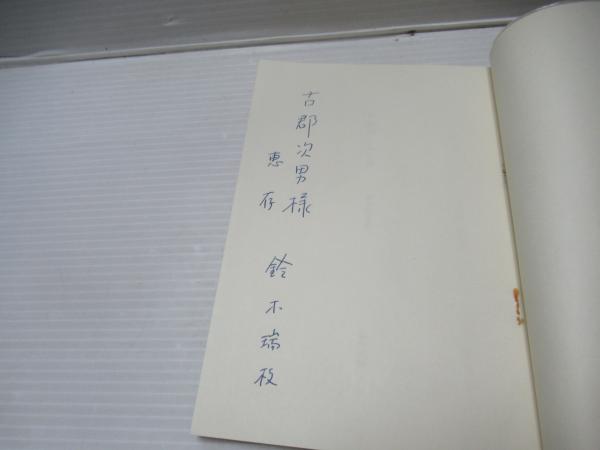 古郡次男様
恵存
鈴木瑞枝